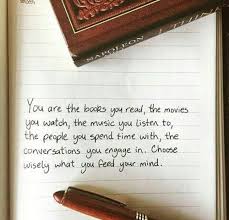 NAPOLEON
You are the books you read, the movies
you watch, the music you listen to,
the people you spend time with, the
conversations you engage in.. Choose
wisely what you feed your mind.